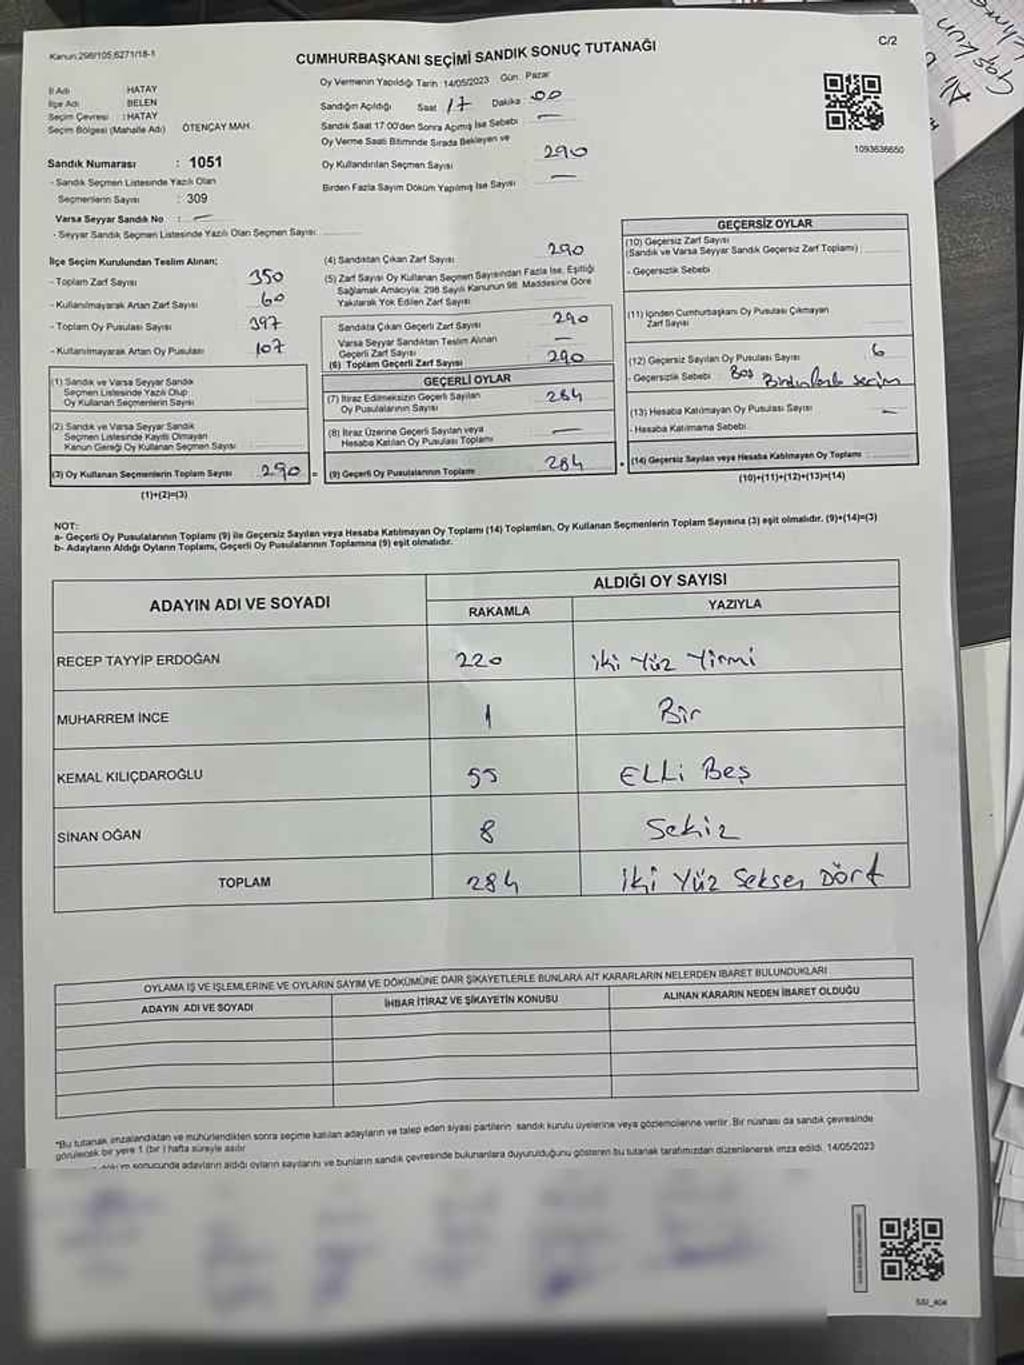 Kanun:298/105,6271/18-1
C/2
CUMHURBAŞKANI SEÇİMİ SANDIK SONUÇ TUTANAĞI
İl Adı HATAY
İlçe Adı BELEN
Seçim Çevresi : HATAY
Seçim Bölgesi (Mahalle Adı) ÖTENÇAY MAH.
Sandık Numarası : 1051
- Sandık Seçmen Listesinde Yazılı Olan
Seçmenlerin Sayısı : 309
Varsa Seyyar Sandık No : —
- Seyyar Sandık Seçmen Listesinde Yazılı Olan Seçmen Sayısı:
Oy Vermenin Yapıldığı Tarih :14/05/2023 Gün: Pazar
Sandığın Açıldığı Saat 17 Dakika 00
Sandık Saat 17.00'den Sonra Açımış İse Sebebi —
Oy Verme Saati Bitiminde Sırada Bekleyen ve
Oy Kullandırılan Seçmen Sayısı 290
Birden Fazla Sayım Döküm Yapılmış İse Sayısı —
1093636650
İlçe Seçim Kurulundan Teslim Alınan;
- Toplam Zarf Sayısı 350
- Kullanılmayarak Artan Zarf Sayısı 60
- Toplam Oy Pusulası Sayısı 397
- Kullanılmayarak Artan Oy Pusulası 107
(1) Sandık ve Varsa Seyyar Sandık
Seçmen Listesinde Yazılı Olup
Oy Kullanan Seçmenlerin Sayısı
(2) Sandık ve Varsa Seyyar Sandık
Seçmen Listesinde Kayıtlı Olmayan
Kanun Gereği Oy Kullanan Seçmen Sayısı
(3) Oy Kullanan Seçmenlerin Toplam Sayısı 290 =
(1)+(2)=(3)
(4) Sandıktan Çıkan Zarf Sayısı 290
(5) Zarf Sayısı Oy Kullanan Seçmen Sayısından Fazla İse, Eşitliği
Sağlamak Amacıyla; 298 Sayılı Kanunun 98. Maddesine Göre
Yakılarak Yok Edilen Zarf Sayısı
Sandıkta Çıkan Geçerli Zarf Sayısı 290
Varsa Seyyar Sandıktan Teslim Alınan
Geçerli Zarf Sayısı —
(6) Toplam Geçerli Zarf Sayısı 290
GEÇERLİ OYLAR
(7) İtiraz Edilmeksizin Geçerli Sayılan
Oy Pusulalarının Sayısı 284
(8) İtiraz Üzerine Geçerli Sayılan veya
Hesaba Katılan Oy Pusulası Toplamı —
(9) Geçerli Oy Pusulalarının Toplamı 284
GEÇERSİZ OYLAR
(10) Geçersiz Zarf Sayısı
(Sandık ve Varsa Seyyar Sandık Geçersiz Zarf Toplamı)
- Geçersizlik Sebebi
(11) İçinden Cumhurbaşkanı Oy Pusulası Çıkmayan
Zarf Sayısı
(12) Geçersiz Sayılan Oy Pusulası Sayısı 6
- Geçersizlik Sebebi : Boş seçim
(13) Hesaba Katılmayan Oy Pusulası Sayısı —
- Hesaba Katılmama Sebebi
(14) Geçersiz Sayılan veya Hesaba Katılmayan Oy Toplamı
(10)+(11)+(12)+(13)=(14)
NOT:
a- Geçerli Oy Pusulalarının Toplamı (9) ile Geçersiz Sayılan veya Hesaba Katılmayan Oy Toplamı (14) Toplamları, Oy Kullanan Seçmenlerin Toplam Sayısına (3) eşit olmalıdır. (9)+(14)=(3)
b- Adayların Aldığı Oyların Toplamı, Geçerli Oy Pusulalarının Toplamına (9) eşit olmalıdır.
ADAYIN ADI VE SOYADI
ALDIĞI OY SAYISI
RAKAMLA YAZIYLA
RECEP TAYYİP ERDOĞAN 220 iki Yüz Yirmi
MUHARREM İNCE 1 Bir
KEMAL KILIÇDAROĞLU 55 ELLi Beş
SİNAN OĞAN 8 Sekiz
TOPLAM 284 iki Yüz Seksen Dört
OYLAMA İŞ VE İŞLEMLERİNE VE OYLARIN SAYIM VE DÖKÜMÜNE DAİR ŞİKAYETLERLE BUNLARA AİT KARARLARIN NELERDEN İBARET BULUNDUKLARI
ADAYIN ADI VE SOYADI İHBAR İTİRAZ VE ŞİKAYETİN KONUSU ALINAN KARARIN NEDEN İBARET OLDUĞU
*Bu tutanak imzalandıktan ve mühürlendikten sonra seçime katılan adayların ve talep eden siyasi partilerin sandık kurulu üyelerine veya gözlemcilerine verilir. Bir nüshası da sandık çevresinde
görülecek bir yere 1 (bir ) hafta süreyle asılır.
sonucunda adayların aldığı oyların sayılarını ve bunların sandık çevresinde bulunanlara duyurulduğunu gösteren bu tutanak tarafımızdan düzenlenerek imza edildi. 14/05/2023